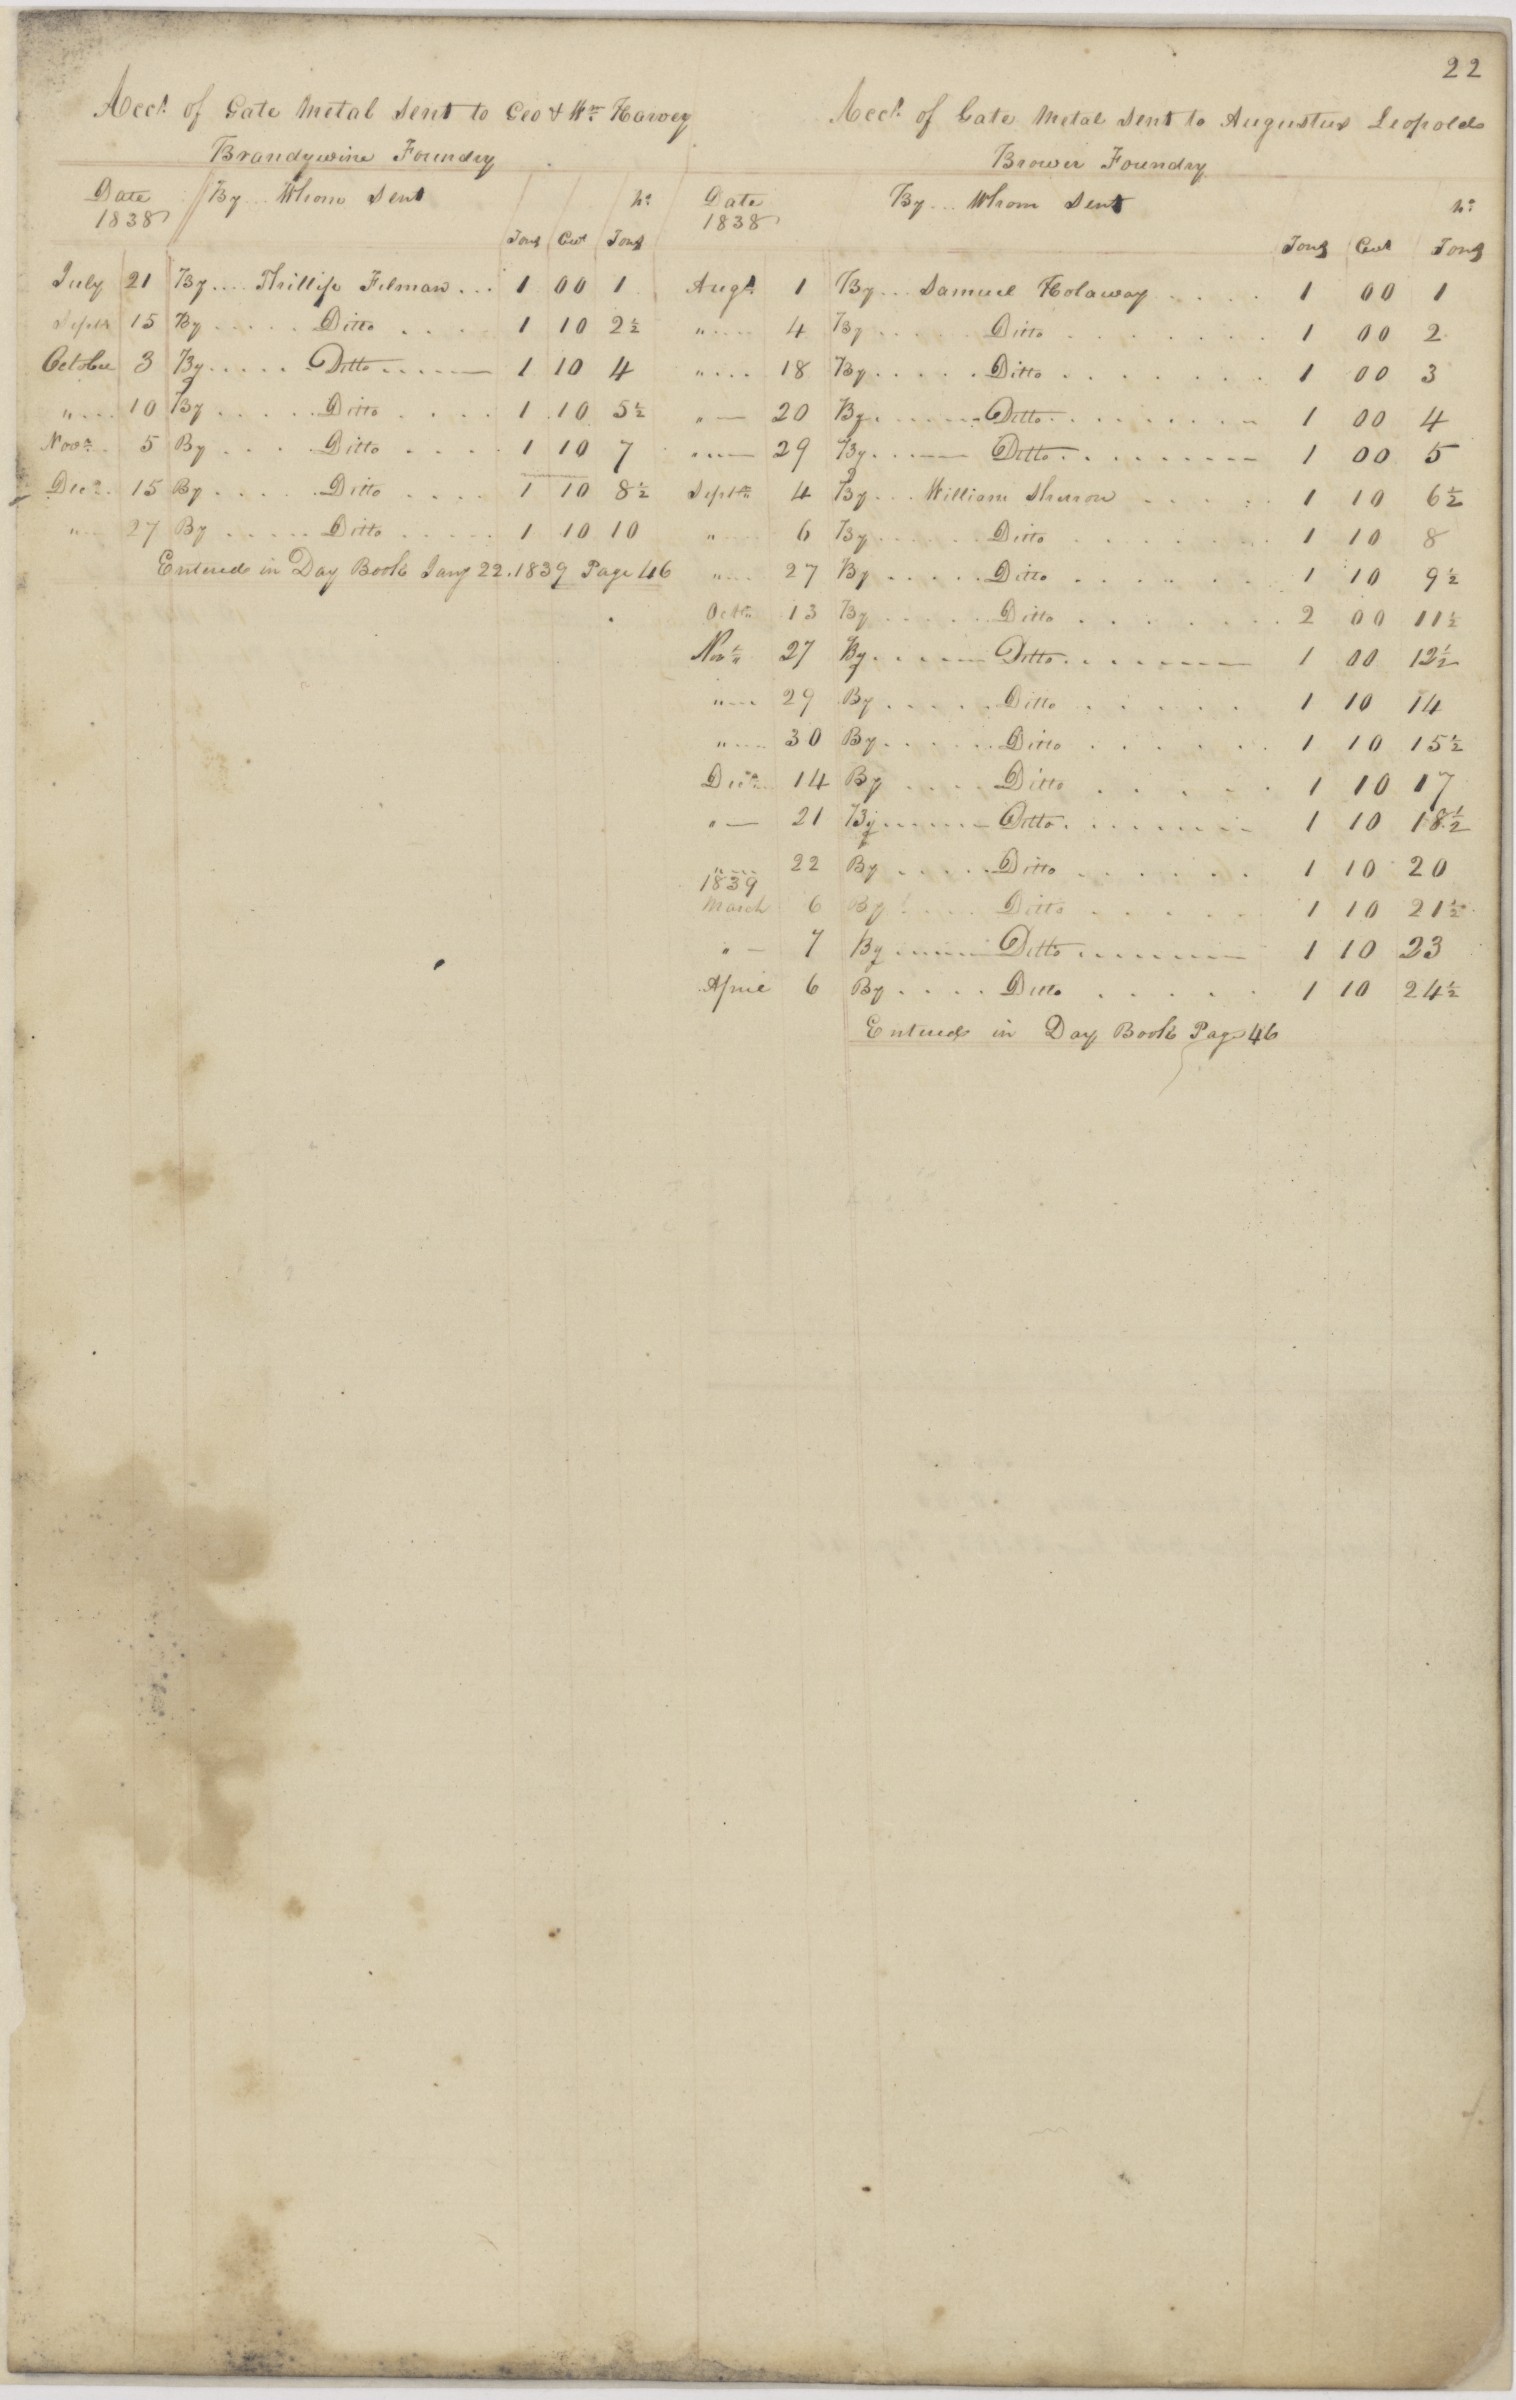 22
Acct. of Gate Metal Sent to Geo & Wm. Harvey
Brandywine Foundry
Date By ... Whom Sent No.
1838 Tons Cwt Tons
July 21 By .... Phillip Filman ... 1 00 1
Septr 15 By ..... Ditto .... 1 10 2½
October 3 By ..... Ditto ...... 1 10 4
" ... 10 By ..... Ditto .... 1 10 5½
Novr. 5 By .... Ditto .... 1 10 7
Decr. 15 By ..... Ditto .... 1 10 8½
" ... 27 By ..... Ditto ..... 1 10 10
Entered in Day Book Jany 22. 1839 Page 46
Acct. of Gate Metal Sent to Augustus Leopold
Brower Foundry
Date By ... Whom Sent No.
1838 Tons Cwt Tons
Augt. 1 By ... Samuel Holaway .... 1 00 1
" .... 4 By ..... Ditto ....... 1 00 2
" .... 18 By ..... Ditto ....... 1 00 3
" — 20 By ...... Ditto ......... 1 00 4
" .... 29 By ...... Ditto ......... 1 00 5
Septr. 4 By ... William ..... 1 10 6½
" .... 6 By ...... Ditto ....... 1 10 8
" .... 27 By ..... Ditto ....... 1 10 9½
Octr. 13 By ..... Ditto ........ 2 00 11½
Novr. 27 By ...... Ditto ........ 1 00 12½
" .... 29 By ..... Ditto ...... 1 10 14
" .... 30 By ...... Ditto ...... 1 10 15½
Decr. 14 By .... Ditto ..... 1 10 17
" — 21 By ...... Ditto ........ 1 10 18½
" .... 22 By ..... Ditto ...... 1 10 20
1839
March 6 By .... Ditto ..... 1 10 21½
" — 7 By ...... Ditto ........ 1 10 23
April 6 By .... Ditto ..... 1 10 24½
Entered in Day Book Page 46